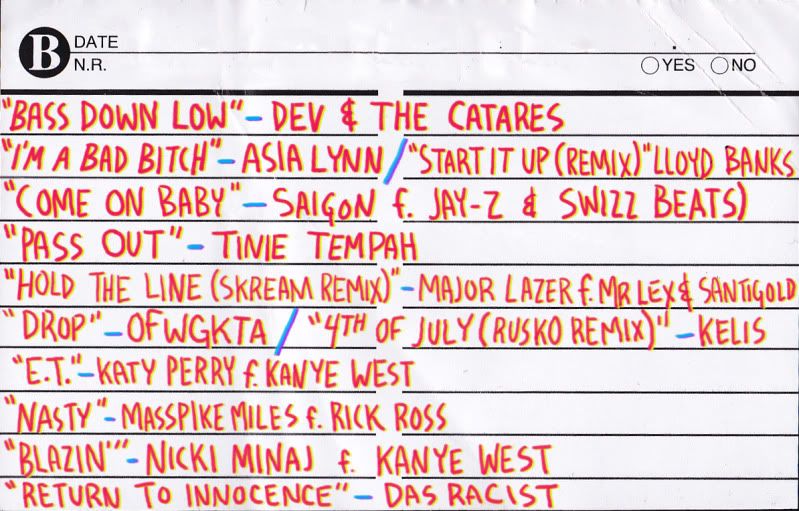 B DATE
N.R. YES NO
"BASS DOWN LOW" - DEV & THE CATARES
"I'M A BAD BITCH" - ASIA LYNN / "START IT UP (REMIX)" LLOYD BANKS
"COME ON BABY" - SAIGON f. JAY-Z & SWIZZ BEATS)
"PASS OUT" - TINIE TEMPAH
"HOLD THE LINE (SKREAM REMIX)" - MAJOR LAZER f. MR LEX & SANTIGOLD
"DROP" - OFWGKTA / "4TH OF JULY (RUSKO REMIX)" - KELIS
"E.T." - KATY PERRY f. KANYE WEST
"NASTY" - MASSPIKE MILES f. RICK ROSS
"BLAZIN'" - NICKI MINAJ f. KANYE WEST
"RETURN TO INNOCENCE" - DAS RACIST